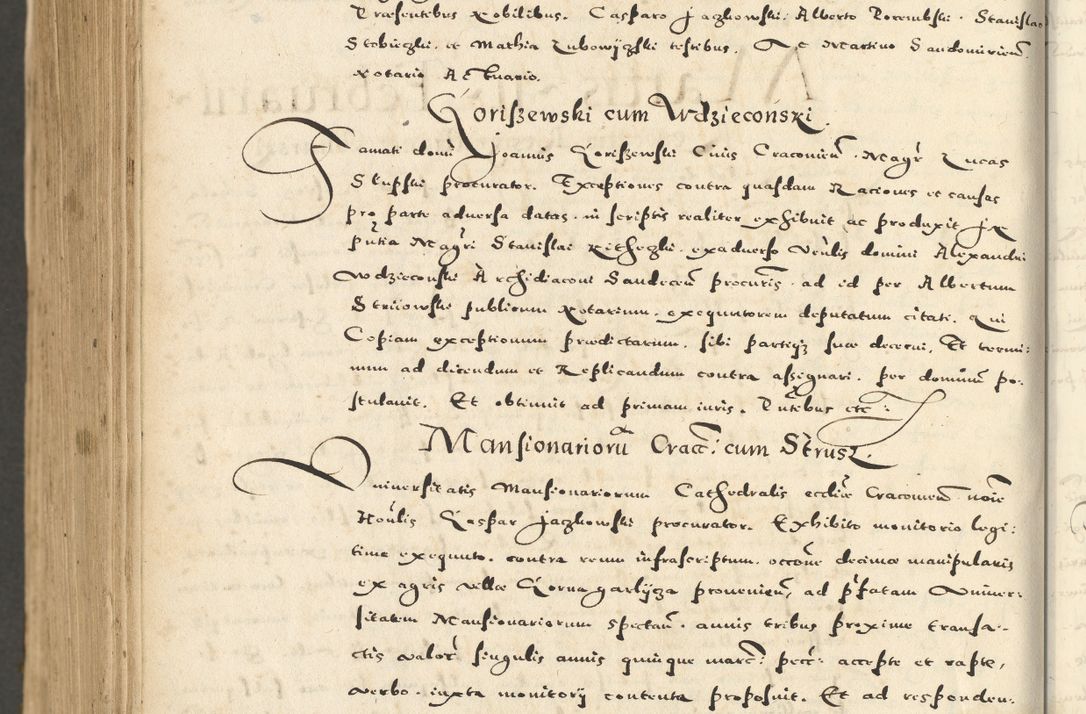 Præsentibus Nobilibus. Casparo Jaczkowski. Alberto Porembski. Stanislao
Stobieczki. et Mathia Zubowijzski testibus. Ac Martino Sandomirien̄.
Notario Actuario.
Goriszewski cum Wdzieconski.
Famati domī Joannis Goriszewski Civis Cracovien̄. Magr̄ Lucas
Slupski procurator. Exceptiones contra quasdam Raciones et causas
pro parte adversa datas. in scriptis realiter exhibuit ac produxit In
pn̄tia Magr̄i Stanislai exadverso Ven̄lis domini Alexandri
Wdzieconski Archidiaconi Sandecen̄ procur̄is. ad id per Albertum
Strijowski publicum Notarium. exequutorem deputatum citati. Qui
Copiam exceptionum prædictarum. sibi partiq; suæ decerni. Et termi:
num ad dicendum et Replicandum contra assignari. per dominū po:
stulavit. Et obtinuit ad primam iuris. Pn̄tibus etc:
Mansionariorū Cracc̄: cum Strusz.
Universitatis Mansionariorum Cathedralis eccliæ Cracovien̄. noīe
Hon̄lis Caspar Jaczkowski procurator. Exhibito monitorio legi:
time exequuto. contra reum infrascriptum. occōne decimæ manipularis
ex agris villæ provenien̄, ad p̄fatam Univer:
sitatem Mansionariorum spectan̄. annis tribus proxime transa:
ctis valor̄ singulis annis quinque marc̄: pecc̄: accepte et rapte,
verbo. iuxta monitorij contenta proposuit. Et ad responden: